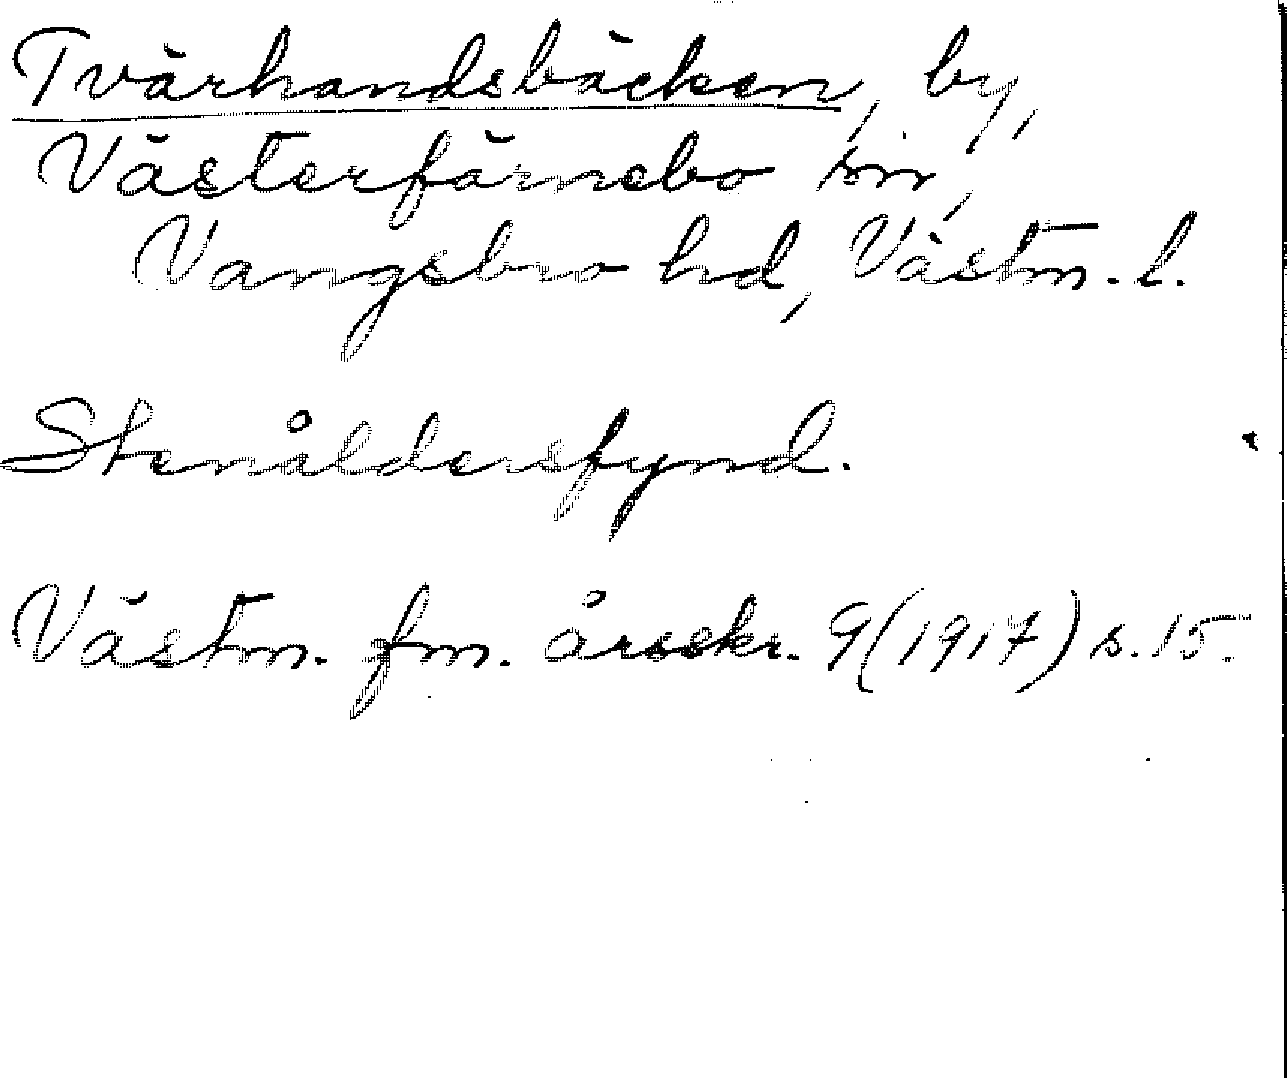 Tvärhandsbäcken, by,
Västerfärnebo sn,
Vangsbro hd, Västm. l.
Stenåldersfynd.
Västm. fm. årsskr. 9 (1917) s. 15.